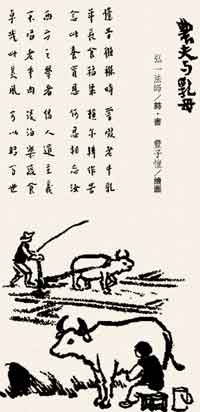 農夫与乳母
弘一法師／詩・書 豐子愷／繪圖
憶昔襁褓時 嘗啜老牛乳
年長食稻粱 賴爾耕作苦
念此養育恩 何忍相忘汝
西方之學者 倡人道主義
不啗老牛肉 淡泊樂蔬食
卓哉此美風 可以昭百世